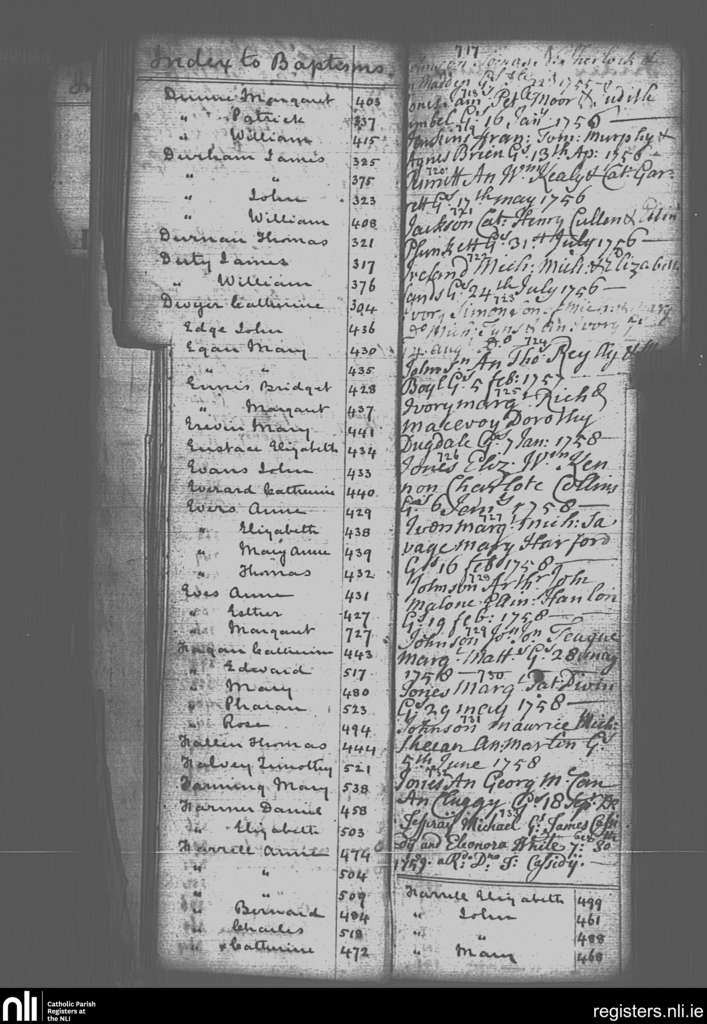 Index to Baptisms.
Dunne Margaret 403
" Patrick 337
" William 415
Durham James 325
" " 375
" John 323
" William 408
Durnan Thomas 321
Duty James 317
" William 376
Dwyer Catherine 304
Edge John 436
Egan Mary 430
" " 435
Ennis Bridget 428
" Margaret 437
Erevin Mary 441
Eustace Elizabeth 434
Evans John 433
Everard Catherine 440
Evers Anne 429
" Elizabeth 438
" Mary Anne 439
" Thomas 432
Eves Anne 431
" Esther 427
" Margaret 727
Fagan Catherine 443
" Edward 517
" Mary 480
" Pharan 523
" Rose 494
Fallin Thomas 444
Falvey Timothy 521
Farming Mary 538
Farmer Daniel 458
" Elizabeth 503
Farrell Anne 474
" " 504
" " 509
" Bernard 484
" Charles 518
" Catherine 472
717
1755
718
Jones Pet Moor & Judith
Gs. 16 Jany 1756
719
Jenkins Fran: Tom: Murphy &
Agnes Brien Gs 13th Ap: 1756
720
An Wm Kealy & Cat: Gar
rett Gs. 17th may 1756
721
Jackson Cat: Henry Cullen &
Plunkett Gs 31st July 1756
722
Ireland Mich: Mich: & Elizabeth
Gs. 24th July 1756
723
Ivory Simon
Mich: ivory
14 aug 724
Johnson An Thos Reylly &
Boyl Gs. 5 feb: 1757
725
Ivory marg: Rich &
macevoy Dorothy
Dugdale Gs. 7 Jan: 1758
726
Jones Eliz. Wm Ken
non Charlote Collins
Gs 6 Jany 1758
727
Ivon marg: mich: Sa
vage mary Harford
Gs 16 feb: 1758
728
Johnson Arthr John
Malone Elin: Hanlon
Gs. 19 feb: 1758
729
Johnson Jon Jon Teague
marg: Matt: Gs. 28 may
1758 730
Jones Marg Pat: Divin
Gs. 29 may 1758
731
Johnson maurice Mich:
Sheean An: Martin Gs
5th June 1758
732
Jones An Georg McCan
An Cluggy Gs. 18 Sep: 58
733
Jeffray Michael Gs. James Cassi
dy and Eleonora White 7: 30
1759. a Rd. Dno J: Cassidy
Farrell Elizabeth 499
" John 461
" " 488
" Mary 468
nli
Catholic Parish
Registers at
the NLI
registers.nli.ie